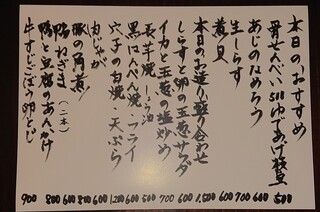 本日のおすすめ
骨せんべい 500
ゆであげ枝豆 500
あじのなめろう 600
生しらす 700
煮貝 600
本日のお造り盛り合わせ 1,500
しらすと卵の玉葱サラダ 600
イカと玉葱の塩炒め 700
長芋焼 しょう油 500
黒はんぺん焼・フライ 600
穴子の白焼 天ぷら 1,200
肉じゃが 600
豚の角煮 800
鴨ねぎま(二本) 600
鴨と豆腐のあんかけ 800
牛すじごぼう卵とじ 900